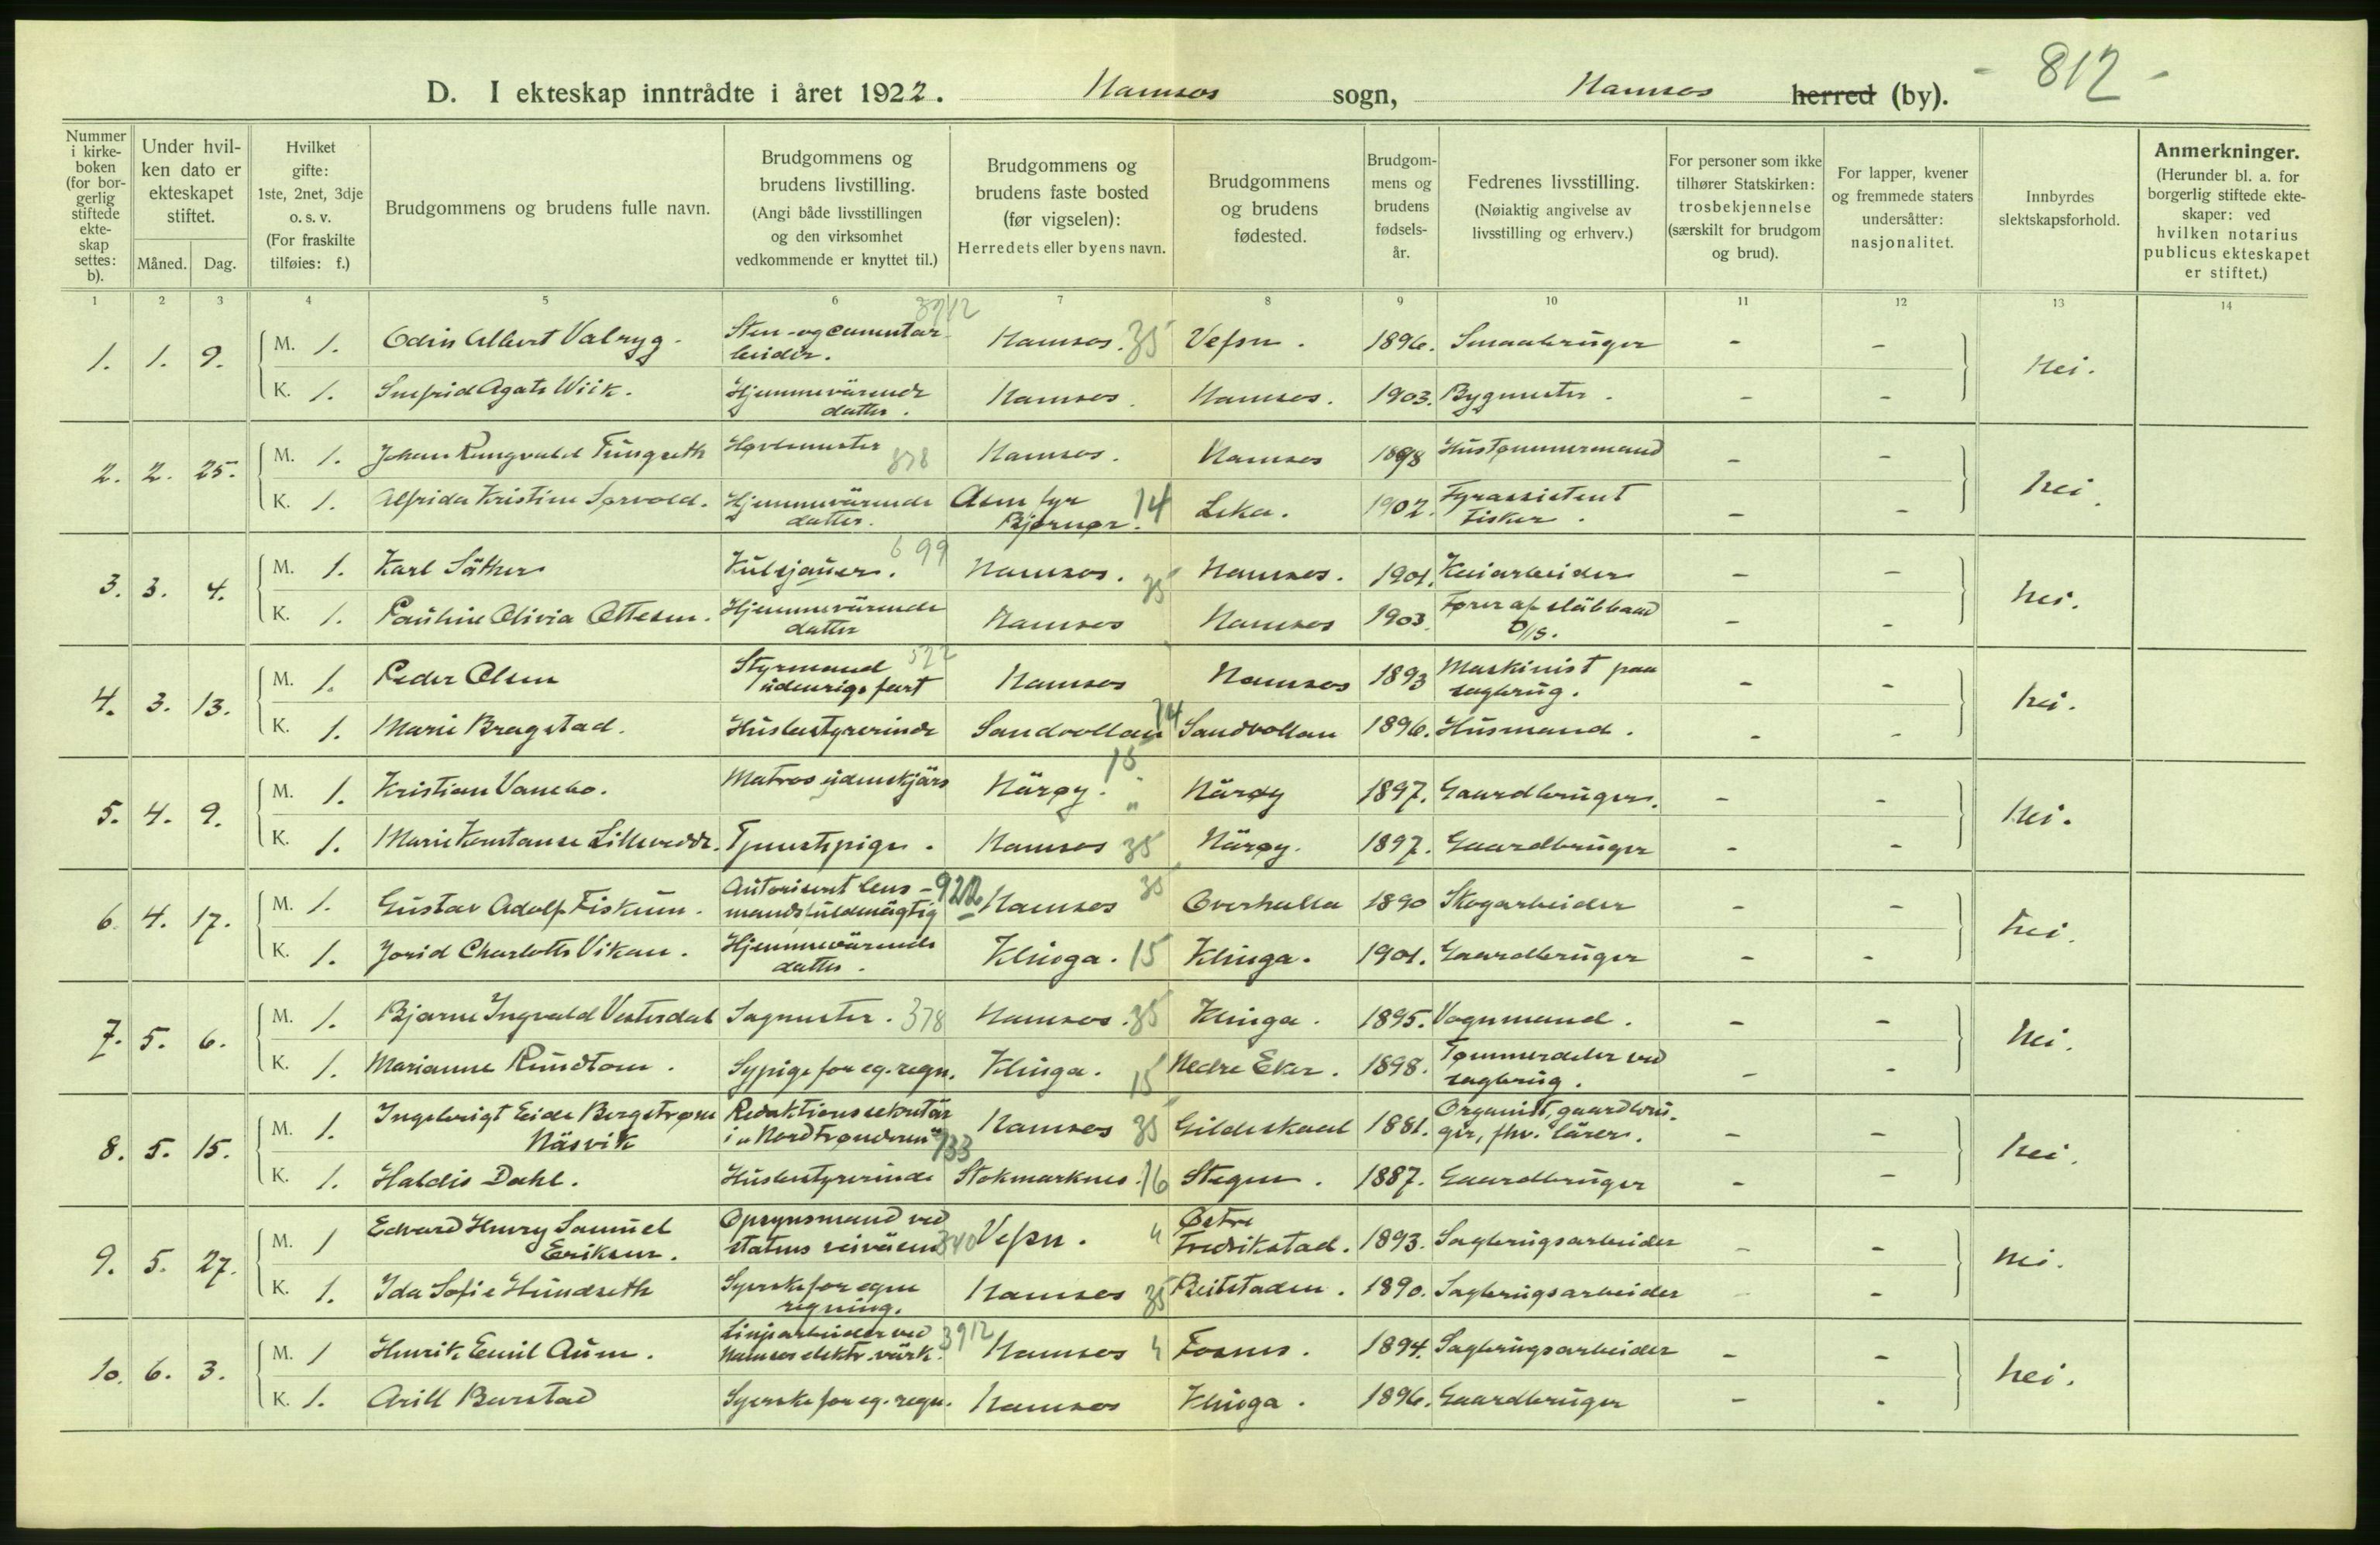 D. I ekteskap inntrådte i året 1922. Namsos sogn, Namsos herred (by). - 812 -
Nummer i kirkeboken (for borgerlig stiftede ekteskap settes: b).
Under hvilken dato er ekteskapet stiftet.
Måned. Dag.
Hvilket gifte: 1ste, 2net, 3dje o. s. v. (For fraskilte tilføies: f.)
Brudgommens og brudens fulle navn.
Brudgommens og brudens livstilling. (Angi både livsstillingen og den virksomhet vedkommende er knyttet til.)
Brudgommens og brudens faste bosted (før vigselen): Herredets eller byens navn.
Brudgommens og brudens fødested.
Brudgommens og brudens fødselsår.
Fedrenes livsstilling. (Nøiaktig angivelse av livsstilling og erhverv.)
For personer som ikke tilhører Statskirken: trosbekjennelse (særskilt for brudgom og brud).
For lapper, kvener og fremmede staters undersåtter: nasjonalitet.
Innbyrdes slektskapsforhold.
Anmerkninger. (Herunder bl. a. for borgerlig stiftede ekteskaper: ved hvilken notarius publicus ekteskapet er stiftet.)
1 2 3 4 5 6 7 8 9 10 11 12 13 14
1. 1. 9. M. 1. Odin Albert Valryg. Sten- og cementarbeider. 3912 Namsos. 35 Vefsn. 1896. Smaabruger - - Nei.
K. 1. Snefrid Agate Wiik. Hjemmevärende datter. Namsos. Namsos. 1903. Bygmester. - -
2. 2. 25. M. 1. Johan Rangvald Tüngseth Høvlemester 378 Namsos. Namsos 1898 Hüstømmermand - - Nei.
K. 1. Alfrida Kristine Sørvold. Hjemmevärende datter. Asen fyr Bjørnør. 14 Leka. 1902. Fyrassistent Fisker. - -
3. 3. 4. M. 1. Karl Säther Külsjauer. 699 Namsos. 35 Namsos. 1901. Kaiarbeider - - Nei.
K. 1. Paüline Olivia Ottesen. Hjemmevärende datter Namsos Namsos 1903. Fører af släbbaad D/S. - -
4. 3. 13. M. 1. Peder Olsen Styrmand üdenrigs fart 522 Namsos Namsos 1893 Maskinist paa sagbrüg. - - Nei.
K. 1. Marie Bragstad. Hüsbestyrerinde Sandvollan 14 Sandvollan 1896. Hüsmand. - -
5. 4. 9. M. 1. Kristian Vanebo. Matros üdenskjärs Närøy. 15 " Närøy 1897. Gaardbrüger. - - Nei.
K. 1. Marie Konstanse Lillevedde. Tjenestepige. Namsos 35 Närøy. 1897. Gaardbrüger - -
6. 4. 17. M. 1. Güstav Adolf Fiskum. Aütorisert lensmandsfüldmägtig Namsos 35 Overhalla 1890 Skogarbeider - - Nei.
K. 1. Jorid Charlotte Vikan. Hjemmevärende datter. Klinga. 15 Klinga. 1901. Gaardbrüger - -
7. 5. 6. M. 1. Bjarne Ingvald Vesterdal Sagmester. 378 Namsos. 35 Klinga. 1895. Vognmand. - - Nei.
K. 1. Marianne Ründtom. Sypige for eg. regn. Klinga. 15 Nedre Eker. 1898. Tømmerdeler ved sagbrüg. - -
8. 5. 15. M. 1. Ingebrigt Eide Bergstrøm Näsvik Redaktionssekretär i "Nordtrønderen" 933 Namsos 35 Gildeskaal 1881. Organist, gaardbrüger, fhv. lärer. - - Nei.
K. 1. Haldis Dahl. Hüsbestyrerinde Stokmarknes. 16 Stegen. 1887. Gaardbrüger - -
9. 5. 27. M. 1 Edvard Henry Samüel Eriksen. Opsynsmand ved statens veiväsen 340 Vefsn. 4 Østre Fredrikstad. 1893. Sagbrügsarbeider - - Nei.
K. 1. Ida Sofie Hündseth Syerske for egen regning. Namsos 35 Beitstaden. 1890. Sagbrügsarbeider - -
10. 6. 3. M. 1 Henrik Emil Aüne. Linjearbeider ved Namsos elektr. värk. 3912 Namsos 4 Fosnes. 1894. Sagbrügsarbeider - - Nei.
K. 1. Arill Barstad Syerske for eg. regn. Namsos Klinga. 1896. Gaardbrüger - -